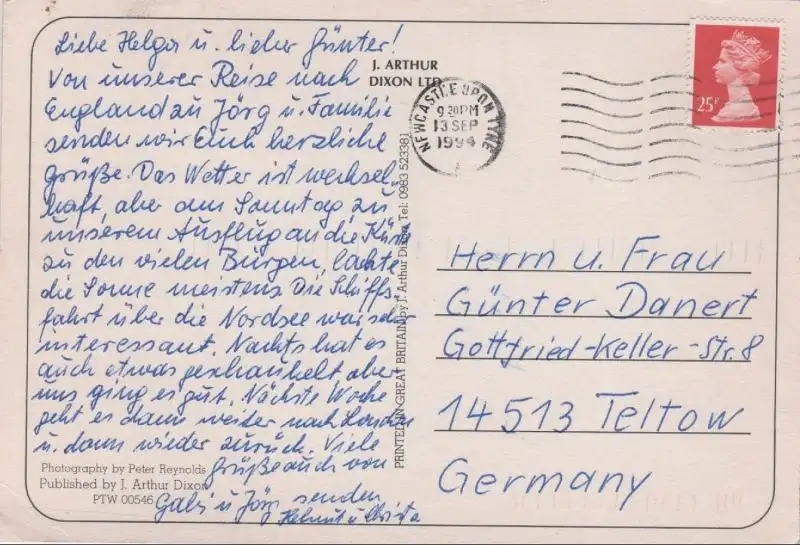 Liebe Helga u. lieber Günter!
Von unserer Reise nach
England zu Jörg u. Familie
senden wir Euch herzliche
Grüße. Das Wetter ist wechsel-
haft, aber am Sonntag zu
unserem Ausflug an die Küste
zu den vielen Burgen, lachte
die Sonne meistens. Die Schiffs-
fahrt über die Nordsee war sehr
interessant. Nachts hat es
auch etwas geschaukelt aber
uns ging es gut. Nächste Woche
geht es dann weiter nach London
u. dann wieder zurück. Viele
Grüße auch von
Gabi u Jörg senden
Helmut u Christa
Photography by Peter Reynolds
Published by J. Arthur Dixon
PTW 00546
J. ARTHUR
DIXON LTD
PRINTED IN GREAT BRITAIN by J. Arthur Dixon Tel: 0983 523381
NEWCASTLE UPON TYNE
9 30PM
13 SEP
1994
25P
Herrn u. Frau
Günter Danert
Gottfried-Keller-Str. 8
14513 Teltow
Germany